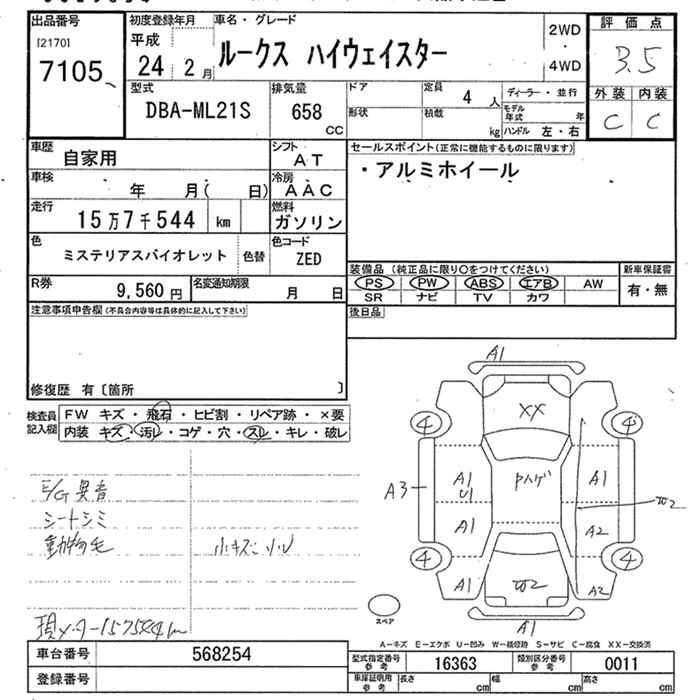 出品番号
[2170]
7105
初度登録年月
平成
24 2月
車名・グレード
ルークス ハイウェイスター
2WD
・
4WD
評価点
3.5
外装 内装
C C
型式
DBA-ML21S
排気量
658
CC
ドア
形状
定員
4 人
積載
kg
ディーラー・並行
モデル年式 年
ハンドル 左・右
車歴
自家用
シフト
AT
車検
年 月( 日)
冷房
AAC
走行
15万7千544 km
燃料
ガソリン
色
ミステリアスバイオレット
色替
色コード
ZED
R券
9,560 円
名変通知期限
月 日
セールスポイント(正常に機能するものに限ります)
・アルミホイール
装備品 (純正品に限り○をつけてください)
PS PW ABS エアB AW
SR ナビ TV カワ
新車保証書
有・無
後日品
注意事項申告欄 (不具合内容等は具体的に記入して下さい)
修復歴 有〔箇所 〕
検査員記入欄
FW キズ・飛石・ヒビ割・リペア跡・×要
内装 キズ・汚レ・コゲ・穴・スレ・キレ・破レ
E/G異音
シートシミ
動物毛
小キズ
現メーター157584km
A1
XX
4
4
A3
A1
U1
Pハゲ
A1
W2
A1
A2
4
4
A1
W2
A2
A1
スペア
A－キズ E－エクボ U－凹み W－補修跡 S－サビ C－腐食 XX－交換済
車台番号
568254
登録番号
型式指定番号参考
16363
類別区分番号参考
0011
車庫証明用参考
長さ cm
幅 cm
高さ cm